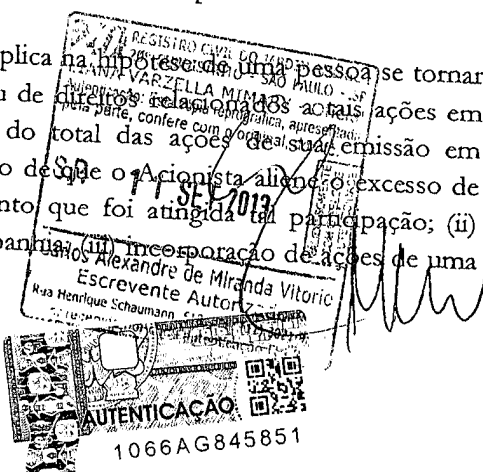 plica na hipótese de uma pessoa se tornar
u de direitos relacionados a tais ações em
do total das ações de sua emissão em
o de que o Acionista aliene o excesso de
nto que foi atingida tal participação; (ii)
panhia; (iii) incorporação de ações de uma
REGISTRO CIVIL DO
SÃO PAULO - SP
VARZELLA MIMARY
reprográfica, apresentada
pela parte, confere com o original
SP
11 SET 2013
Carlos Alexandre de Miranda Vitorio
Escrevente
Rua Henrique Schaumann
AUTENTICAÇÃO
1066AG845851